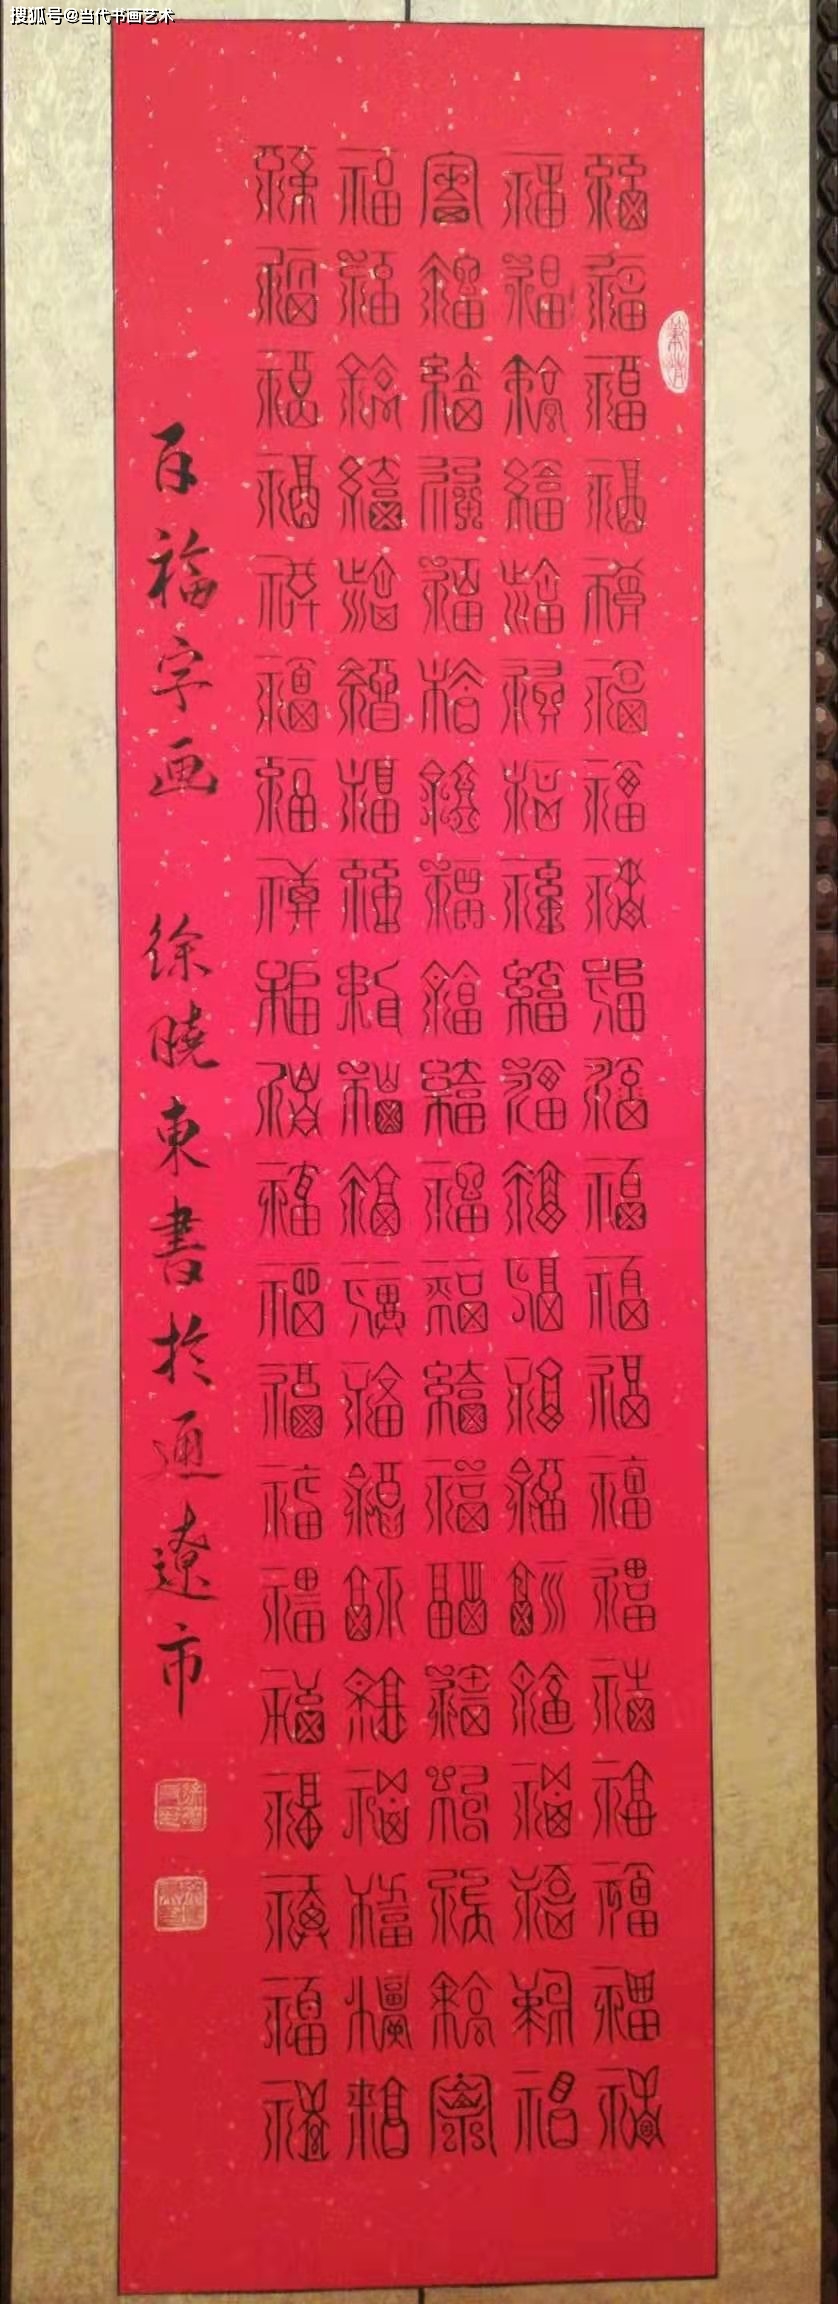 搜狐号@当代书画艺术
福福福福福福福福福福福福福福福福福福福福
福福福福福福福福福福福福福福福福福福福福
福福福福福福福福福福福福福福福福福福福福
福福福福福福福福福福福福福福福福福福福福
福福福福福福福福福福福福福福福福福福福福
百福字画 徐曉東書於通遼市